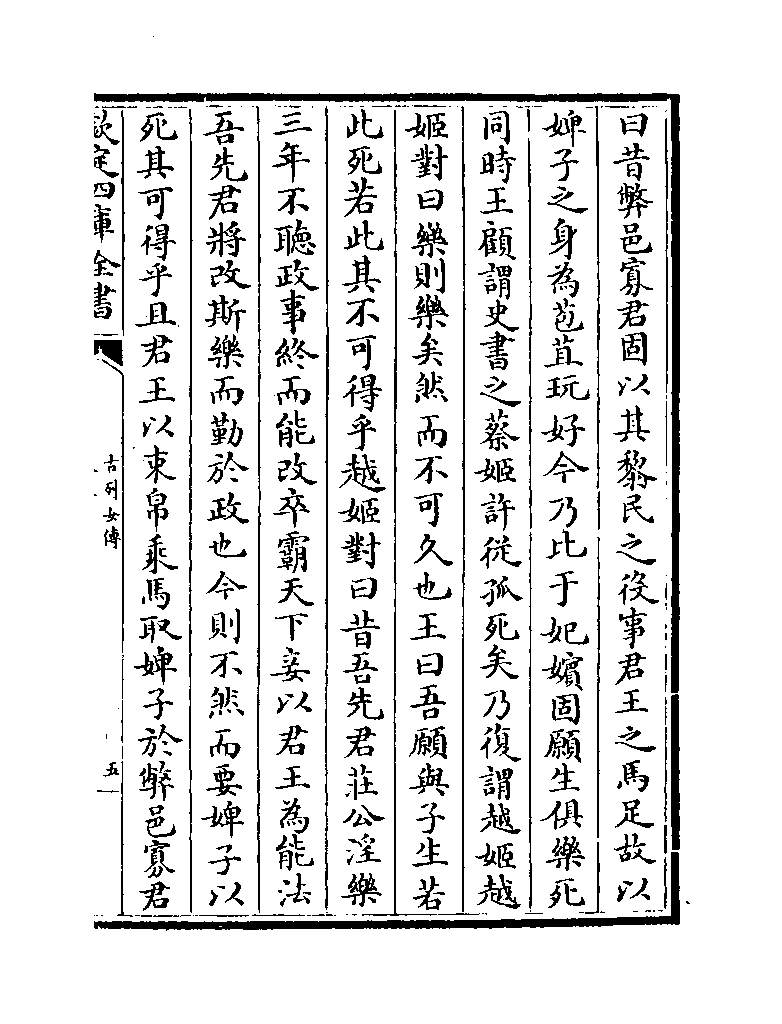 曰昔弊邑寡君固以其黎民之役事君王之馬足故以
婢子之身為苞苴玩好今乃比于妃嬪固願生俱樂死
同時王顧謂史書之蔡姬許從孤死矣乃復謂越姬越
姬對曰樂則樂矣然而不可久也王曰吾願與子生若
此死若此其不可得乎越姬對曰昔吾先君莊公淫樂
三年不聽政事終而能改卒霸天下妾以君王為能法
吾先君將改斯樂而勤於政也今則不然而要婢子以
死其可得乎且君王以束帛乘馬取婢子於弊邑寡君
欽定四庫全書
古列女傳
五